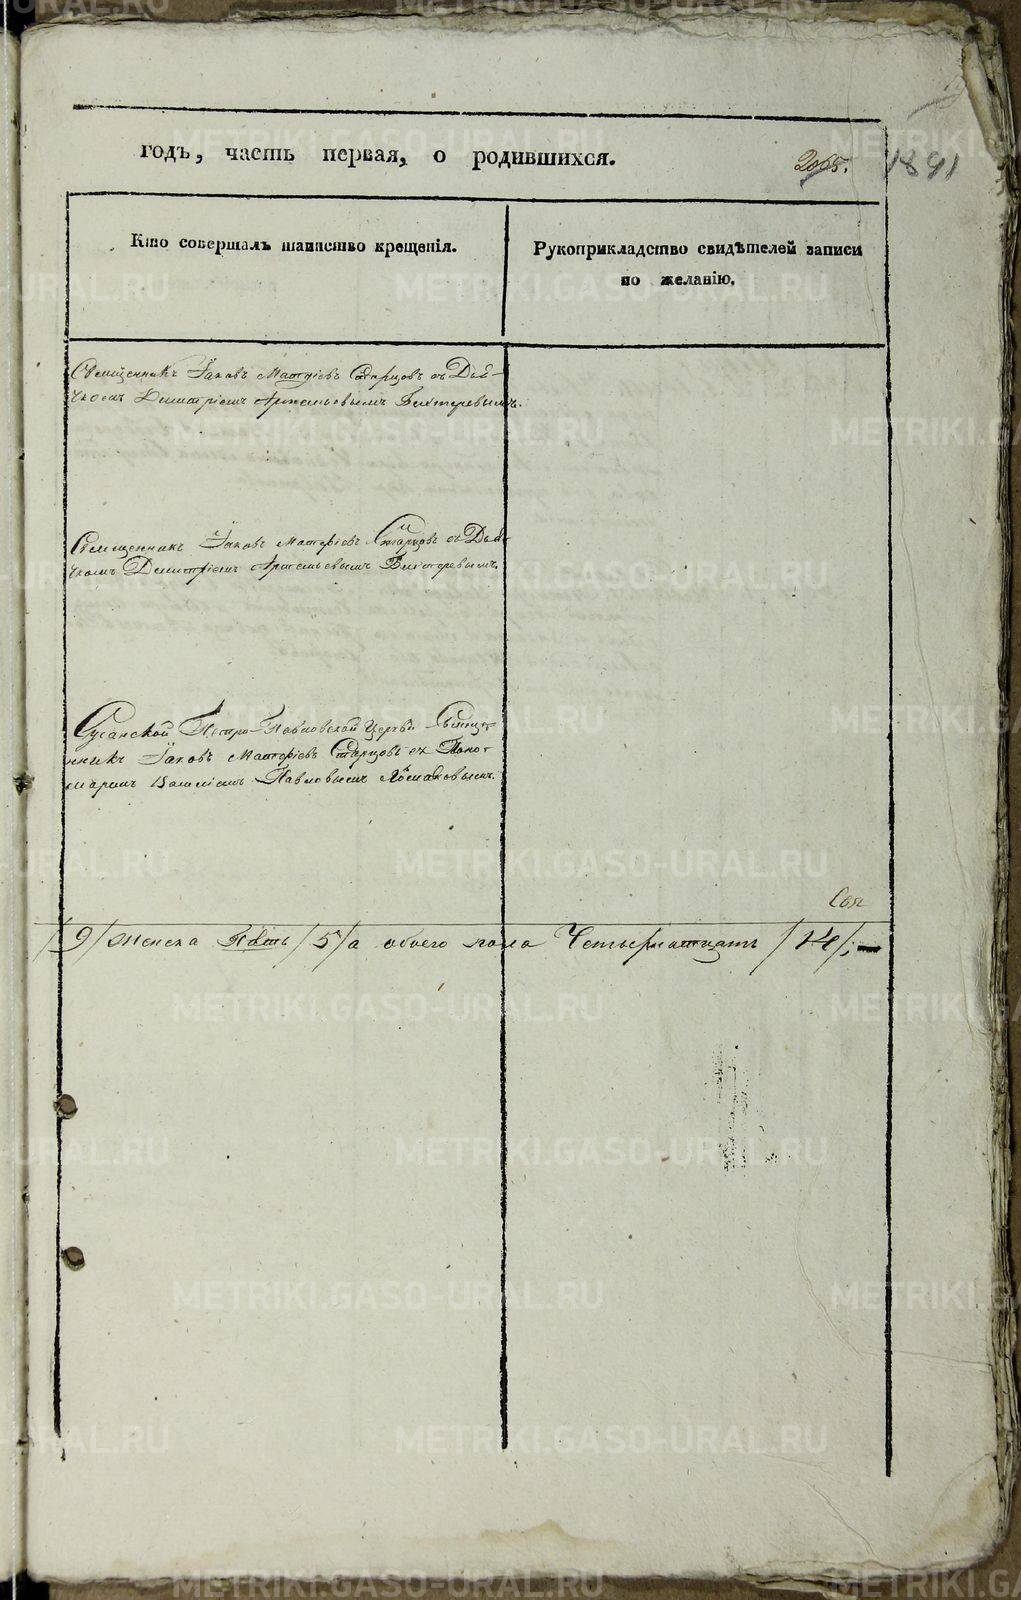 годъ, часть первая, о родившихся.
2065. 1841
Кто совершалъ таинство крещенія.
Рукоприкладство свидѣтелей записи
по желанію.
Священникъ Іаковъ Матѳіевъ Старцовъ съ Дья-
чкомъ Димитріемъ Артемьевымъ Бехтеревымъ.
Священникъ Іаковъ Матѳіевъ Старцовъ съ Дья-
чкомъ Димитріемъ Артемьевымъ Бехтеревымъ.
Сусанской Петро-Павловской Церкви Священ-
никъ Іаковъ Матѳіевъ Старцовъ съ Поно-
маремъ Павловымъ
9/ женска Пять /5/ а обоего пола Четырнатцать /14/;—
METRIKI.GASO-URAL.RU